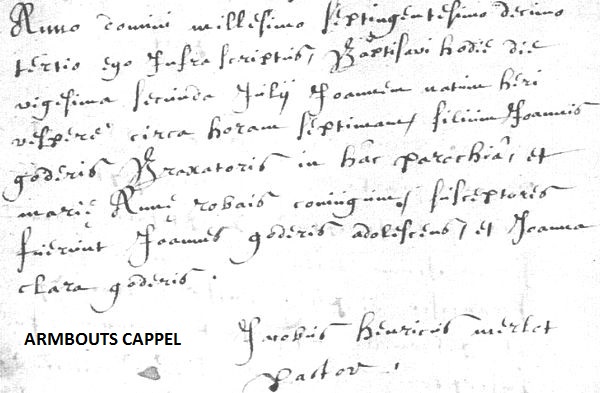 Anno domini millesimo septingentesimo decimo
tertio ego Infra scriptus, Baptisavi hodie die
vigesima secunda Julij Joannem natum heri
vespere circa horam septimam, filium Joannis
goderis Braxatoris in hâc parochiâ, et
marię Annę robais coniugum, susceptores
fuerunt Joannes goderis adolescens, et Joanna
clara goderis .
ARMBOUTS CAPPEL
Jacobus henricus merlot
pastor .